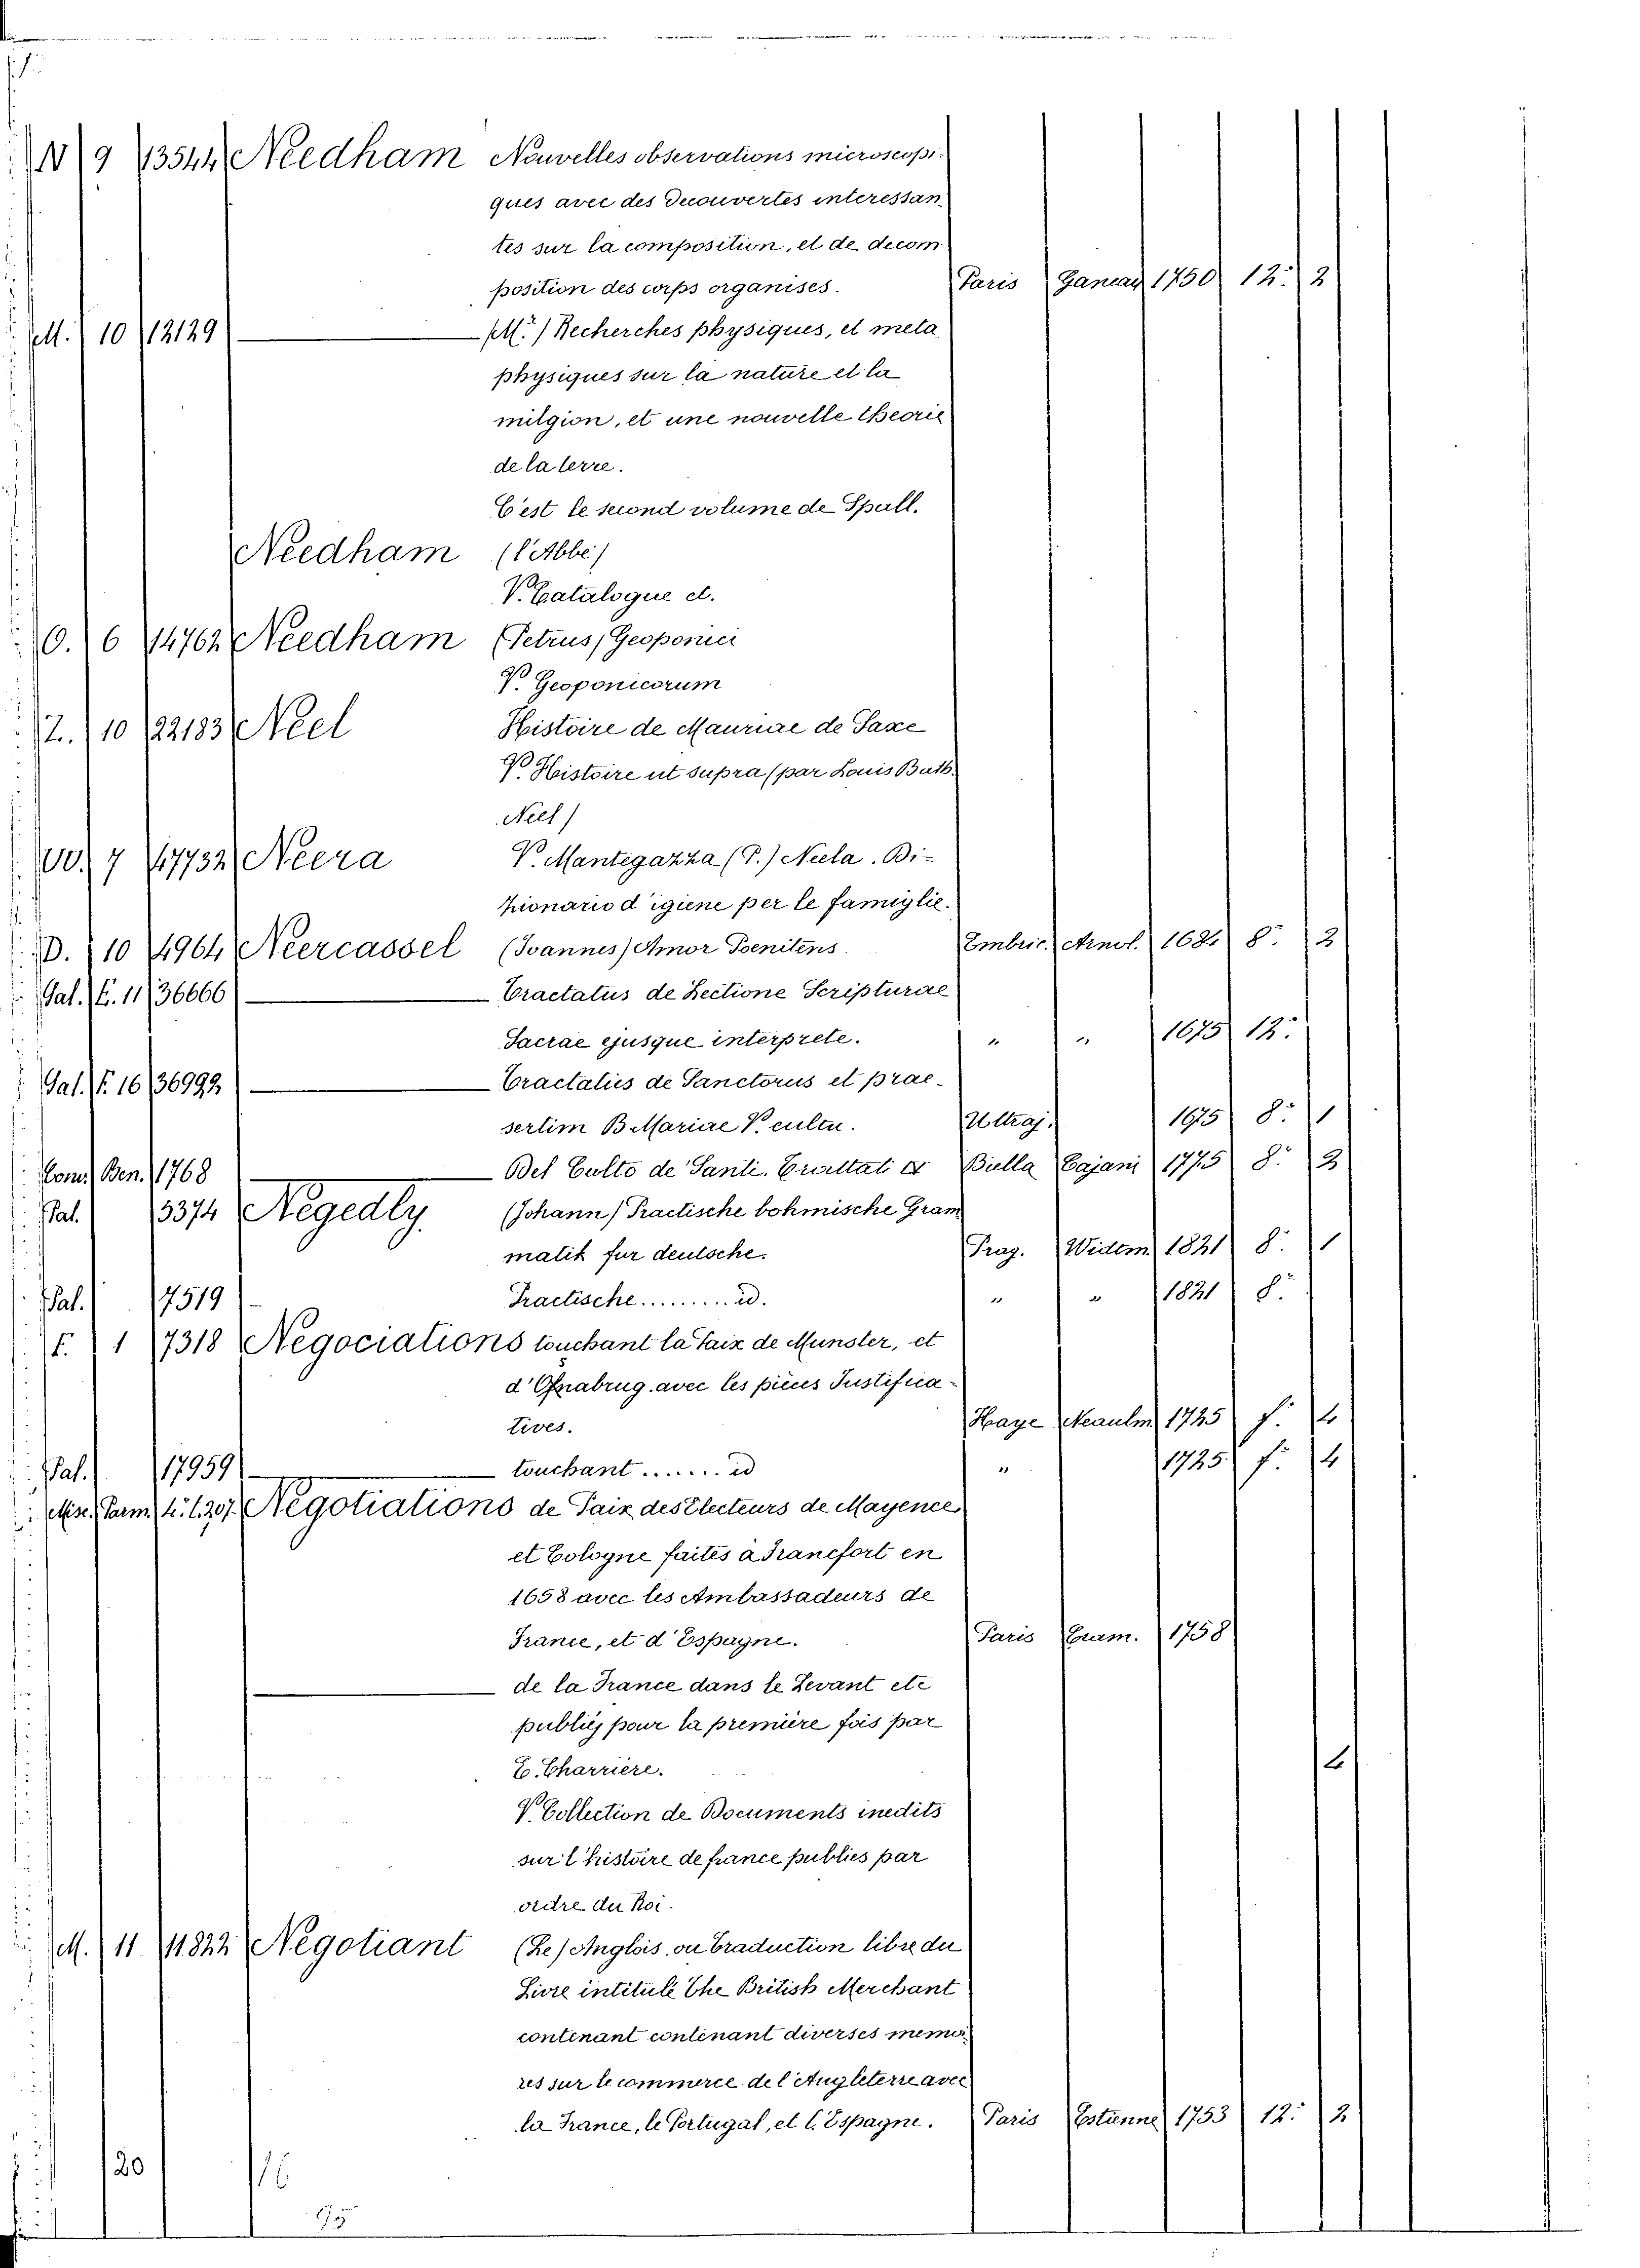 N 9 13544 Needham Nouvelles observations microscopi-
ques avec des decouvertes interessan
tes sur la composition, et de decom
position des corps organises. Paris Ganeau 1750 12.° 2
M. 10 12129 (M.) Recherches physiques, et meta
physiques sur la nature et la
milgion, et une nouvelle theorie
de la terre.
C'est le second volume de Spall.
Needham (l'Abbe)
V. Catalogue et.
O. 6 14762 Needham (Petrus) Geoponici
V. Geoponicorum
Z. 10 22183 Neel Histoire de Maurice de Saxe
V. Histoire ut supra (par Louis Balth.
Neel)
OO. 7 17732 Neera V. Mantegazza (P.) Neela. Di-
zionario d'igiene per le famiglie.
D. 10 4964 Neercassel (Joannes) Amor Poenitens Embric. Arnol. 1682 8.° 2
Gal. E. 11 36666 Tractatus de Lectione Scripturae
Sacrae ejusque interprete. " " 1675 12.°
Gal. F. 16 36992 Tractatus de Sanctorus et prae-
sertim B. Mariae V. cultu. Ultraj. 1675 8.° 1
Com. Ben. 1768 Del Culto de' Santi. Biella Cajani 1775 8.° 2
Pal. 13374 Negedly (Johann) Practische bohmische Gram
matik fur deutsche. Prag. Widem 1821 8.° 1
Pal. 17519 Practische......... id. " " 1821 8.°
F. 1 7318 Negociations touchant la Paix de Munster, et
d'Osnabrug. avec les pieces Justifica-
tives. Haye Neaulm 1725 f. 4
Pal. 17959 touchant....... id " 1725 f. 4
Mis. Parm. Negotiations de Paix des Electeurs de Mayence
et Cologne faites à Francfort en
1658 avec les Ambassadeurs de
France, et d'Espagne. Paris 1758
de la France dans le Levant etc
publiés pour la première fois par
E. Charrière. 4
V. Collection de Documents inedits
sur l'histoire de france publies par
ordre du Roi.
M. 11 11822 Negotiant (Le) Anglois, ou Traduction libre du
Livre intitulé The British Merchant
contenant contenant diverses memoi
res sur le commerce de l'Angleterre avec
la France, le Portugal, et l'Espagne. Paris Estienne 1753 12.° 2
20 16